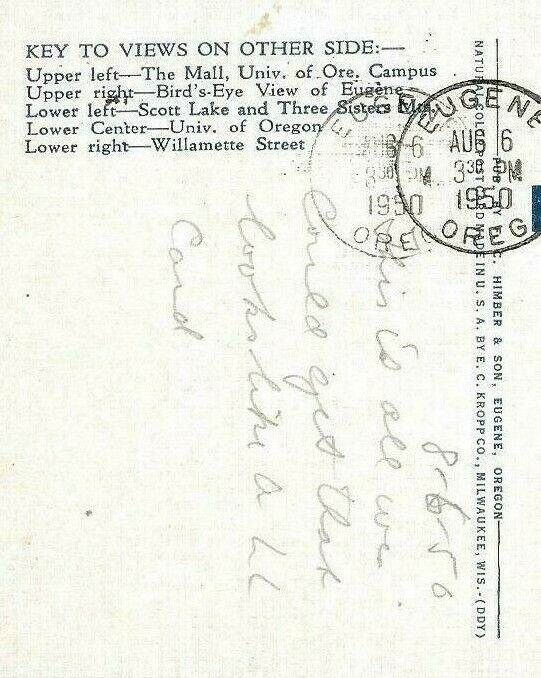 KEY TO VIEWS ON OTHER SIDE:—
Upper left—The Mall, Univ. of Ore. Campus
Upper right—Bird's-Eye View of Eugene
Lower left—Scott Lake and Three Sisters Mts.
Lower Center—Univ. of Oregon
Lower right—Willamette Street
EUGENE
AUG 6
3 30 PM
1950
OREG
EUGENE
6
3 30 PM
1950
OREG
PUB. BY C. HIMBER & SON, EUGENE, OREGON
NATURAL COLOR POST CARD MADE IN U. S. A. BY E. C. KROPP CO., MILWAUKEE, WIS.-(DDY)
8-6-50
This is all we
Could get that
looks like a
Card